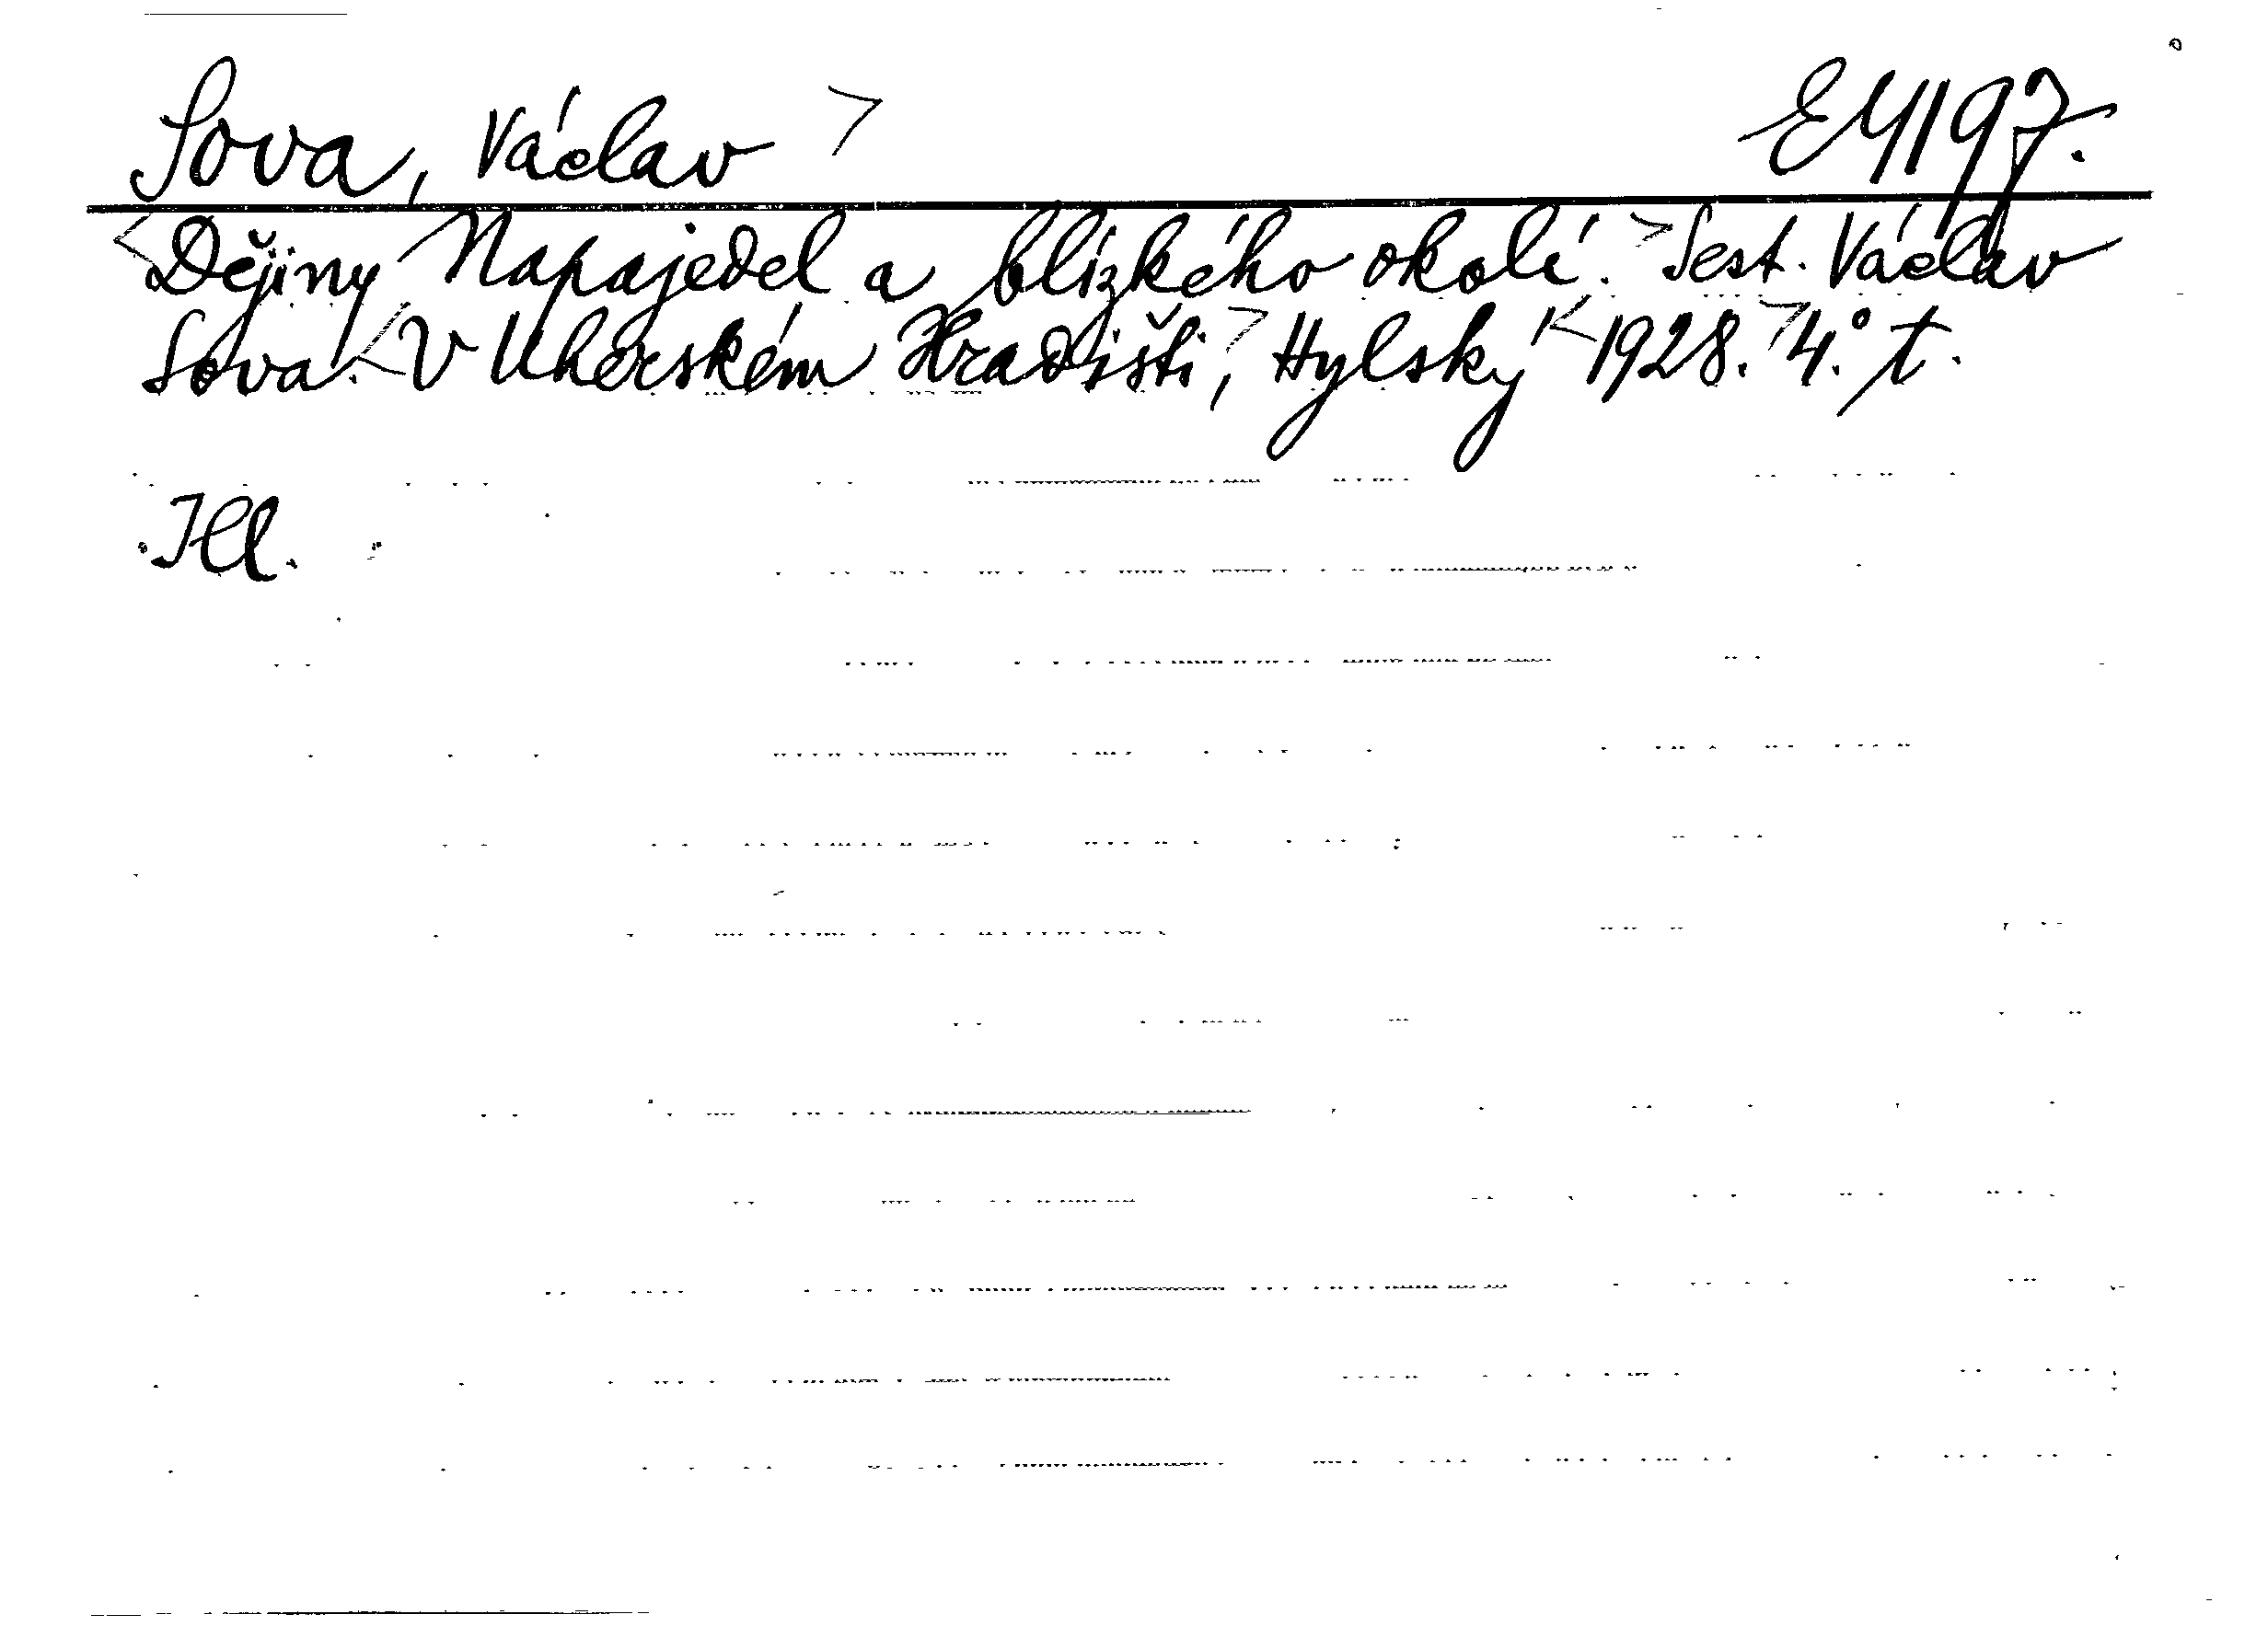 Sova, Václav > E4197.
<Dějiny Napajedel a blízkého okolí.> Sest. Václav
Sova. <V Uherském Hradišti,> Hylský <1928.> 4.° t.
Ill.